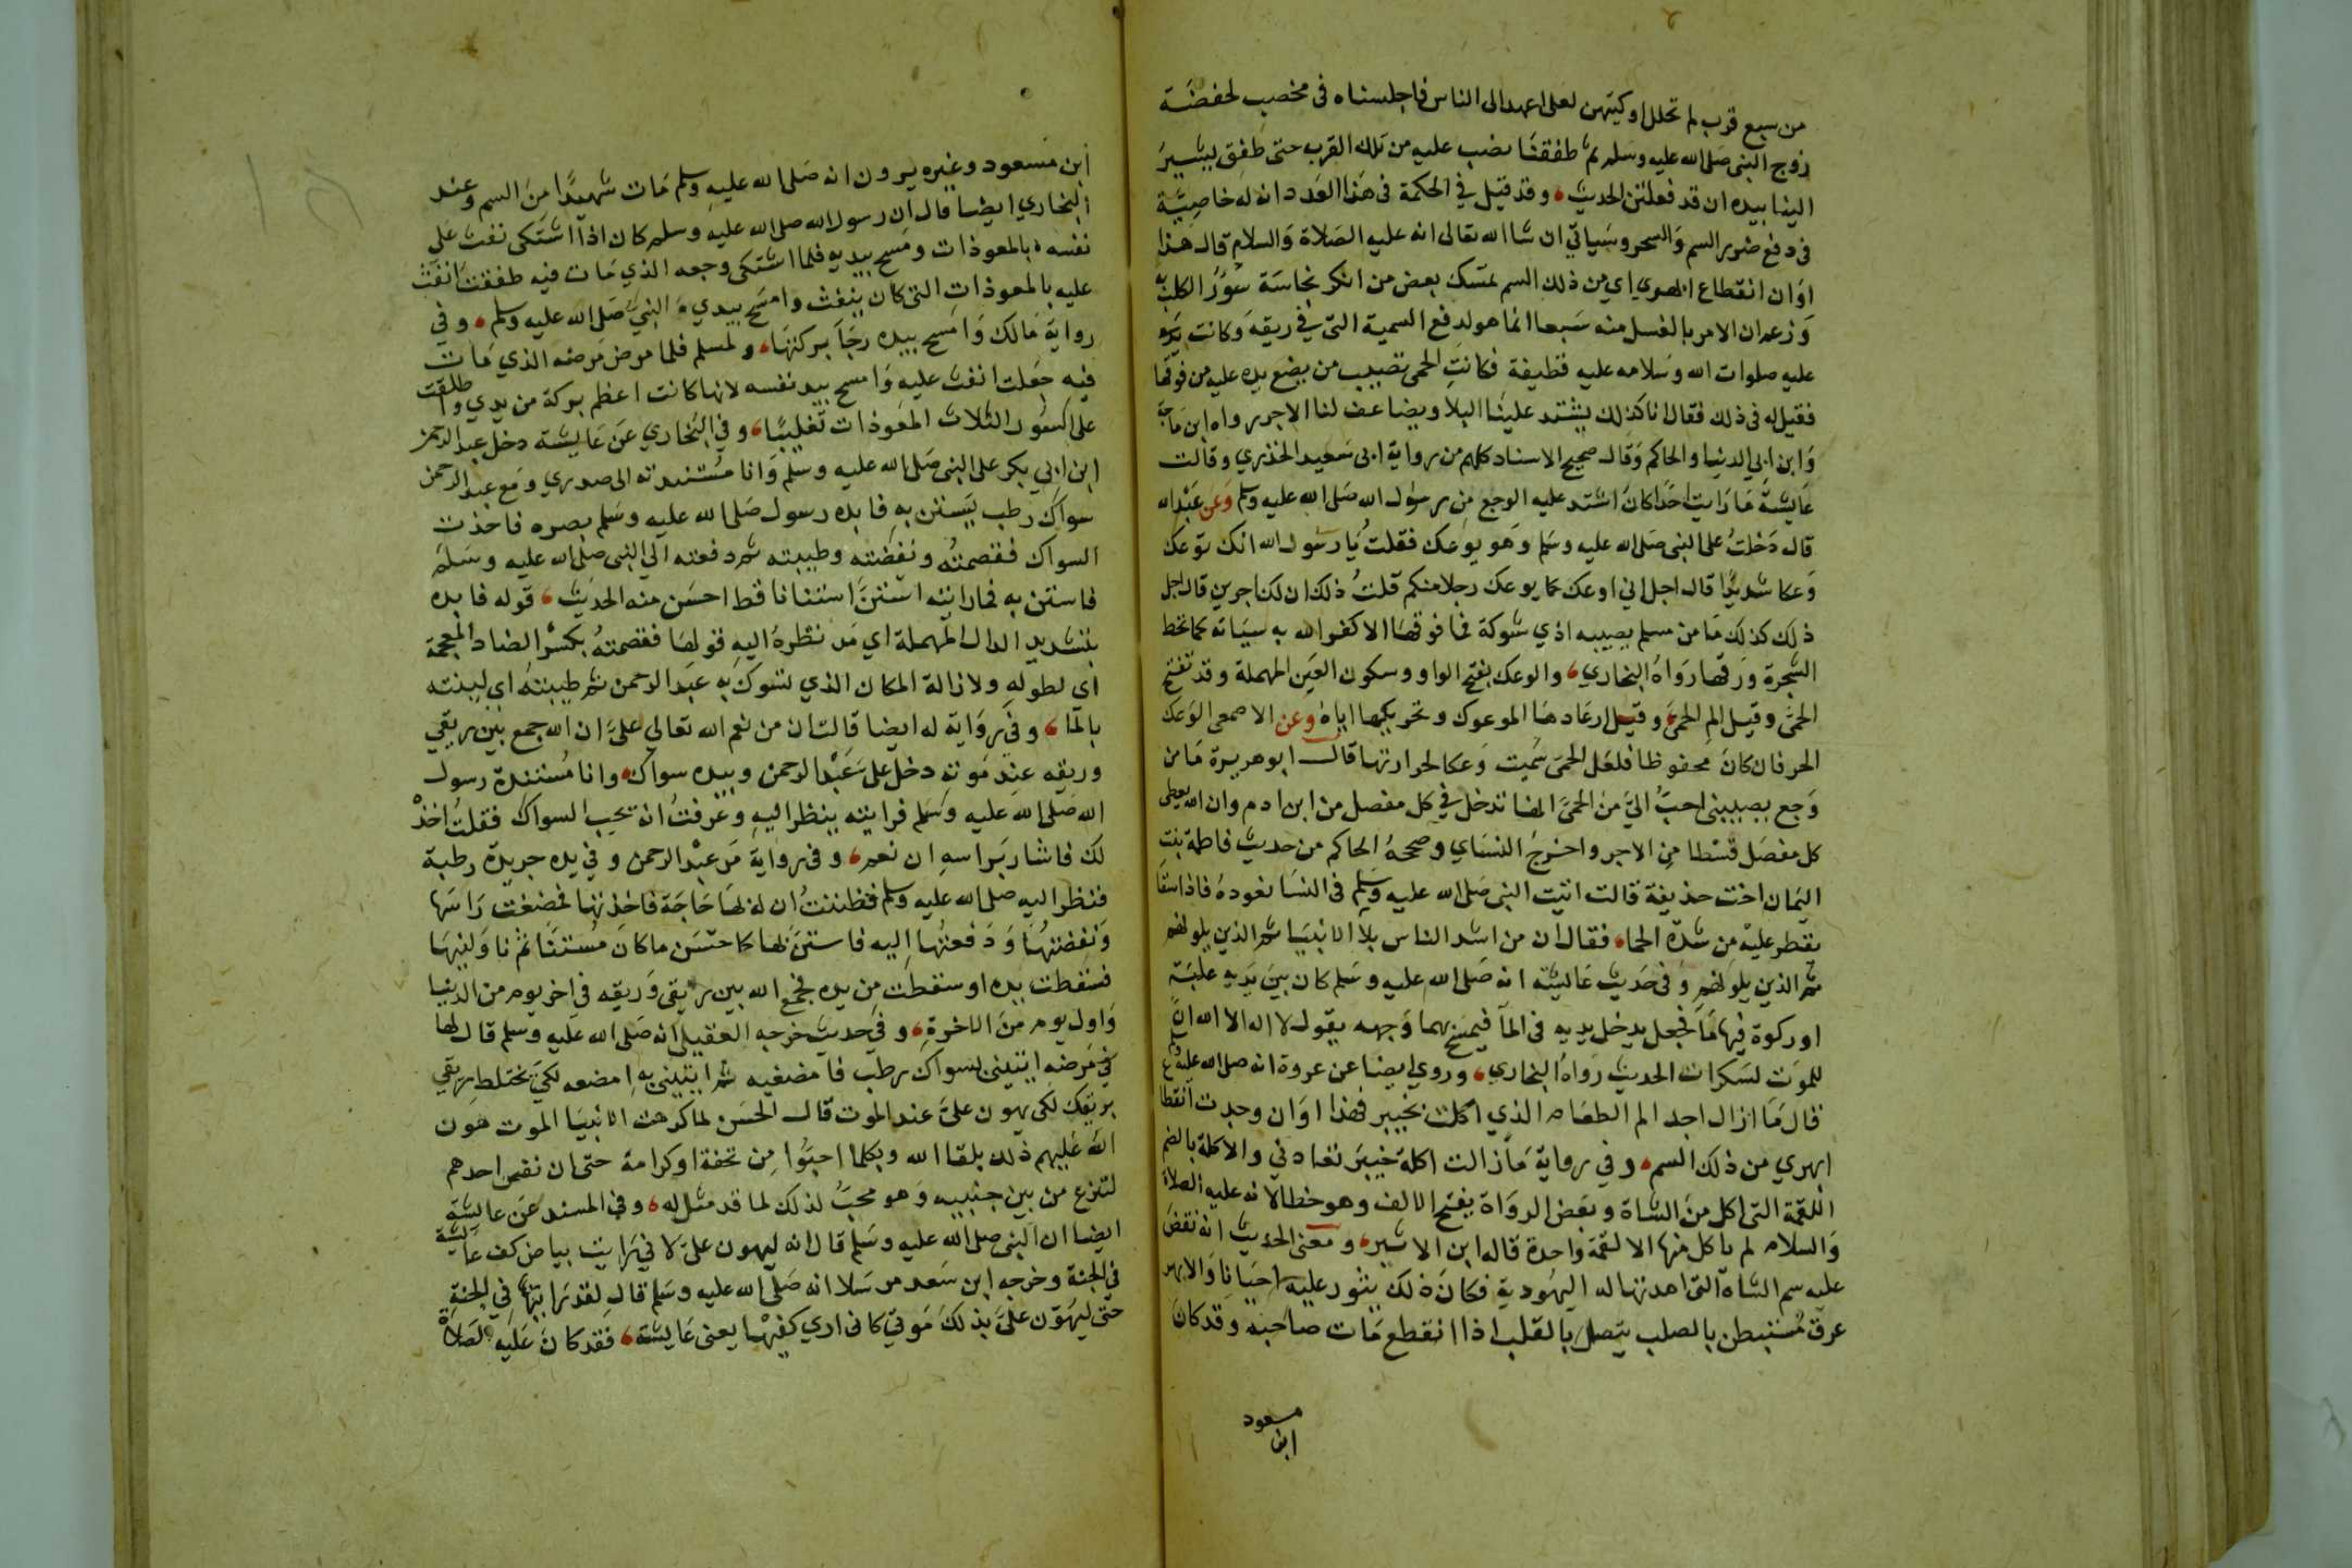 من سبع قرب لم تحلل اوكيتهن لعلي اعهد الى الناس فاجلسناه في مخضب لحفصة
زوج النبي صلى الله عليه وسلم ثم طفقنا نصب عليه من تلك القرب حتى طفق يشير
الينا بيده ان قد فعلتن الحديث وقد قيل في الحكمة في هذا العدد ان له خاصية
في دفع ضرر السم والسحر وسياتي ان شا الله تعالى انه عليه الصلاة والسلام قال هذا
اوان انقطاع ابهري اي من ذلك السم تمسك بعض من انكر نجاسة سؤر الكلب به
وزعم ان الامر بالغسل منه سبعا انما هو لدفع السمية التي في ريقه وكانت
عليه صلوات الله وسلامه عليه قطيفة فكانت الحمى تصيب من يضع يده عليه من فوقها
فقيل له في ذلك فقال انا كذلك يشتد علينا البلا ويضاعف لنا الاجر رواه ابن ماجة
وابن ابي الدنيا والحاكم وقال صحيح الاسناد كلهم من رواية ابي سعيد الخدري وقالت
عايشة ما رايت احدا كان اشتد عليه الوجع من رسول الله صلى الله عليه وسلم وعن عبد الله
قال دخلت على النبي صلى الله عليه وسلم وهو يوعك فقلت يا رسول الله انك توعك
وعكا شديدا قال اجل اني اوعك كما يوعك رجلا منكم قلت ذلك ان لك اجرين قال اجل
ذلك كذلك ما من مسلم يصيبه اذي شوكة فما فوقها الا كفر الله به سياته كما تحط
الشجرة ورقها رواه البخاري والوعك بفتح الواو وسكون العين المهملة وقد تفتح
الحمى وقيل الم الحمى وقيل ارعادها الموعوك وتحريكها اياه وعن الاصمعي الوعك
الحر فان كان محفوظا فلعل الحمى سميت وعكا لحرارتها قال ابو هريرة ما من
وجع يصيبني احب الي من الحمى انها تدخل في كل مفصل من ابن ادم وان الله يعطي
كل مفصل قسطا من الاجر واخرج النساي وصححه الحاكم من حديث فاطمة بنت
اليمان اخت حذيفة قالت اتيت النبي صلى الله عليه وسلم في النسا نعوده فاذا سقا
يقطر عليه من شدة الحما فقال ان من اشد الناس بلا الانبيا ثم الذين يلونهم
ثم الذين يلونهم وفي حديث عايشة انه صلى الله عليه وسلم كان بين يديه علبة
او ركوة فيها ما فجعل يدخل يديه في الما فيمسح بهما وجهه يقول لا اله الا الله ان
للموت لسكرات الحديث رواه البخاري وروي ايضا عن عروة انه صلى الله عليه وسلم
قال ما ازال اجد الم الطعام الذي اكلت بخيبر فهذا اوان وجدت انقطاع
ابهري من ذلك السم وفي رواية ما زالت اكلة خيبر تعادني والاكلة بالضم
اللقمة التي اكل من الشاة وبعض الرواة بفتح الالف وهو خطا لانه عليه الصلاة
والسلام لم ياكل منها الا لقمة واحدة قاله ابن الاثير ومعنى الحديث انه نقض
عليه سم الشاة التي اهدتها له اليهودية فكان ذلك يثور عليه احيانا والابهر
عرق مستبطن بالصلب يتصل بالقلب اذا انقطع مات صاحبه وقد كان
ابن مسعود
ابن مسعود وغيره يرون انه صلى الله عليه وسلم مات شهيدا من السم وعند
البخاري ايضا قال ان رسول الله صلى الله عليه وسلم كان اذا اشتكى نفث على
نفسه بالمعوذات ومسح بيديه فلما اشتكى وجعه الذي مات فيه طفقت انفث
عليه بالمعوذات التي كان ينفث وامسح بيدي النبي صلى الله عليه وسلم وفي
رواية مالك وامسح بيده رجا بركتها ولمسلم فلما مرض مرضه الذي مات
فيه جعلت انفث عليه وامسح بيد نفسه لانها كانت اعظم بركة من يدي واطلقت
على السور الثلاث المعوذات تغليبا وفي البخاري عن عايشة دخل عبد الرحمن
ابن ابي بكر على النبي صلى الله عليه وسلم وانا مسندته الى صدري ومع عبد الرحمن
سواك رطب يستن به فابده رسول صلى الله عليه وسلم بصره فاخذت
السواك فقصمته ونفضته وطيبته ثم دفعته الي النبي صلى الله عليه وسلم
فاستن به فما رايته استن استنانا قط احسن منه الحديث قوله فابده
بتشديد الدال المهملة اي مد نظره اليه قولها فقضمته بكسر الضاد المعجمة
اي لطوله ولازالة المكان الذي تسوك به عبد الرحمن ثم طيبته اي لينته
بالما وفي رواية له ايضا قالت ان من نعم الله تعالى على ان الله جمع بين ريقي
وريقه عند موته دخل على عبد الرحمن وبيده سواك وانا مسندة رسول
الله صلى الله عليه وسلم فرايته ينظر اليه وعرفت انه يحب السواك فقلت اخذ
لك فاشار براسه ان نعم وفي رواية مر عبد الرحمن وفي يده جريدة رطبة
فنظر اليه صلى الله عليه وسلم فظننت ان له لها حاجة فاخذتها فمضغت راسها
ونفضتها ودفعتها اليه فاستن لها كاحسن ما كان مستنا ثم ناولنيها
فسقطت يده او سقطت من يده فجمع الله بين ريقي وريقه في اخر يوم من الدنيا
واول يوم من الاخرة وفي حديث خرجه العقيلي انه صلى الله عليه وسلم قال لها
في مرضه ايتيني بسواك رطب فامضغيه ثم ايتيني به امضعه لكي يختلط ريقي
بريقك لكي يهون علي عند الموت قال الحسن لما كرهت الانبيا الموت هون
الله عليهم ذلك بلقا الله وبكلما احبوا من تحفة او كرامة حتى ان نفس احدهم
لتنزع من بين جنبيه وهو محب لذلك لما قد مثل له وفي المسند عن عايشة
ايضا ان النبي صلى الله عليه وسلم قال انه ليهون علي لاني رايت بياض كف عايشة
في الجنة وخرجه ابن سعد مرسلا انه صلى الله عليه وسلم قال لقد رايتها في الجنة
حتى ليهون علي بذلك موتي كاني اري كفيها يعني عايشة فقد كان عليه الصلاة